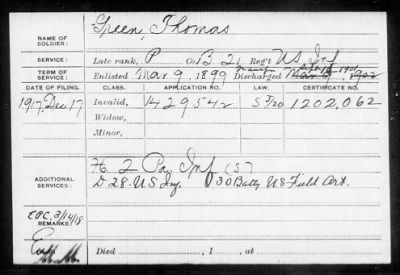 NAME OF SOLDIER: Green, Thomas
SERVICE: Late rank, P Co B 21 Reg't US Inf
TERM OF SERVICE: Enlisted Mar. 9, 1899 Discharged 1902
DATE OF FILING. CLASS. APPLICATION NO. LAW. CERTIFICATE NO.
1917. Dec. 17 Invalid, 1429542 1202,062
Widow,
Minor,
ADDITIONAL SERVICES: H 2 Pa Inf (S)
D 28. U.S. Inf. 30 Batty US Field Art.
EOC. 3/14/18
REMARKS:
Died , 1 , at